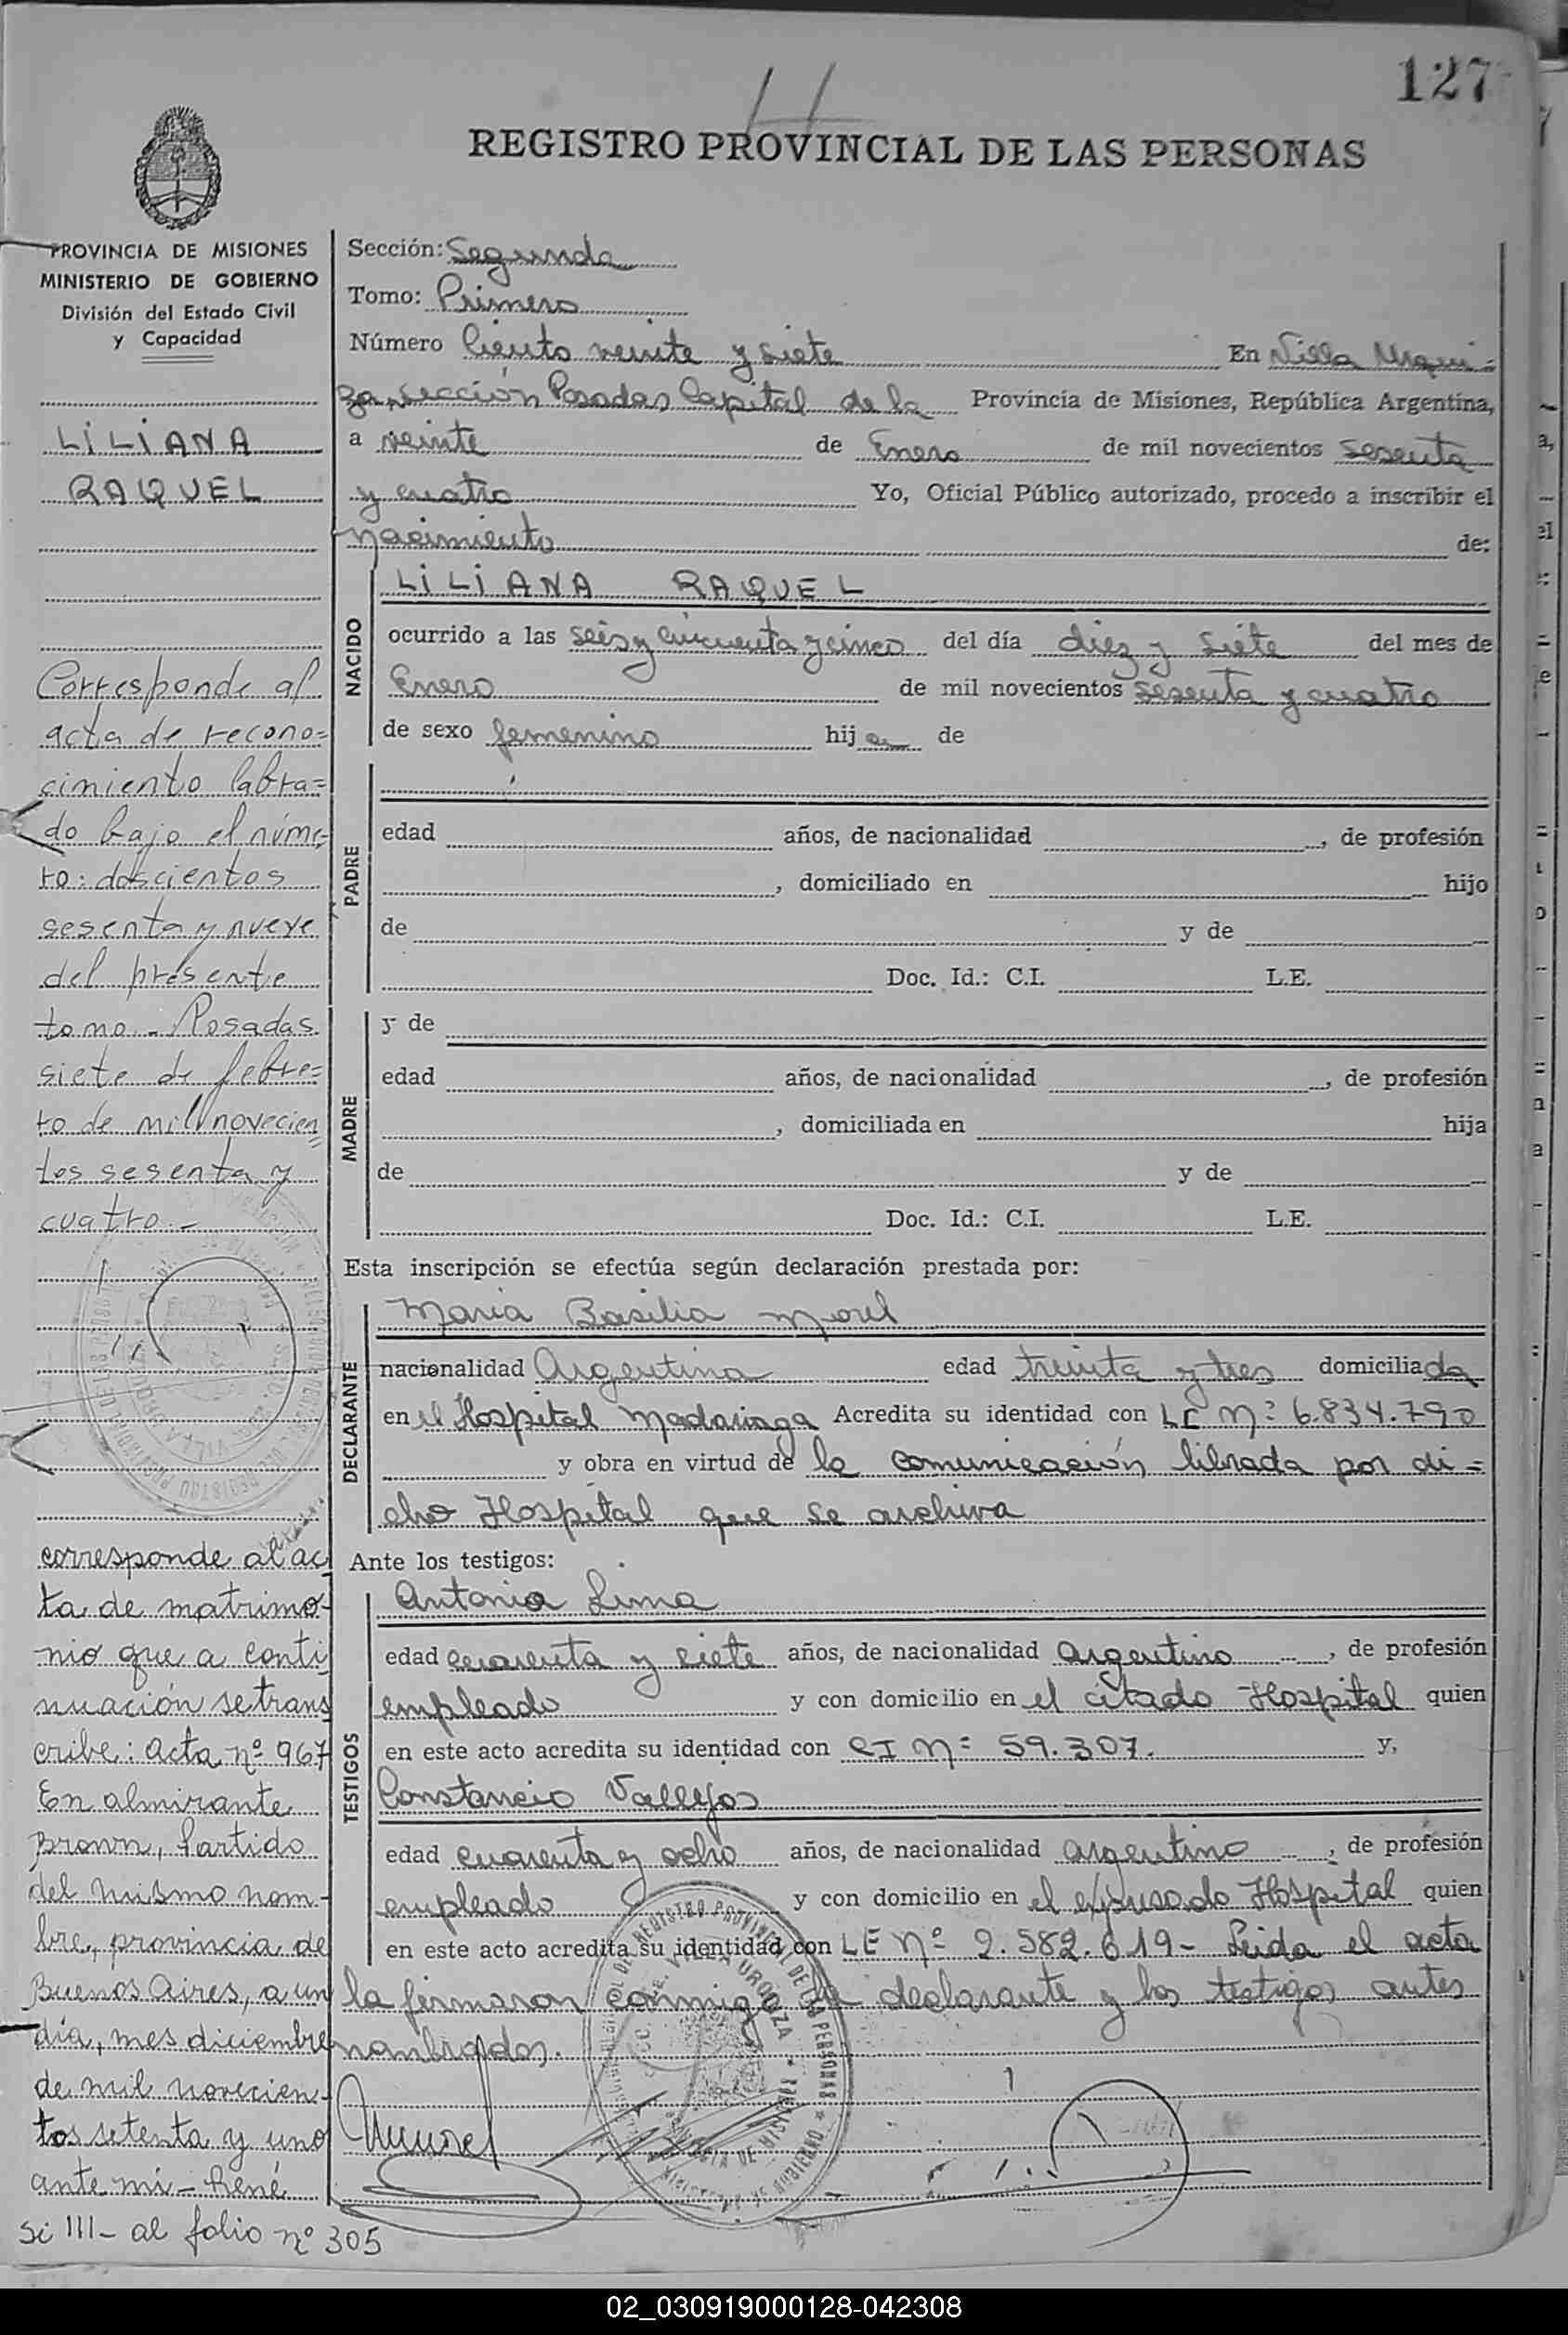 127
REGISTRO PROVINCIAL DE LAS PERSONAS
PROVINCIA DE MISIONES
MINISTERIO DE GOBIERNO
División del Estado Civil
y Capacidad
LILIANA
RAQUEL
Corresponde al
acta de recono=
cimiento labra=
do bajo el núme=
ro: doscientos
sesenta y nueve
del presente
tomo - Posadas
siete de febre=
ro de mil novecien=
tos sesenta y
cuatro.-
corresponde al ac
ta de matrimo-
nio que a conti
nuación se trans
cribe: Acta nº 967
En almirante
Brown, Partido
del mismo nom-
bre, provincia de
Buenos Aires, a un
día, mes diciembre
de mil novecien-
tos setenta y uno
ante mi - René
si III- al folio nº 305
Sección: Segunda
Tomo: Primero
Número Ciento veinte y siete En Villa Urqui-
za, sección Posadas Capital de la Provincia de Misiones, República Argentina,
a veinte de Enero de mil novecientos sesenta
y cuatro Yo, Oficial Público autorizado, procedo a inscribir el
nacimiento de:
NACIDO
LILIANA RAQUEL
ocurrido a las seis y cincuenta y cinco del día diez y siete del mes de
Enero de mil novecientos sesenta y cuatro
de sexo femenino hija de
PADRE
edad años, de nacionalidad , de profesión
, domiciliado en hijo
de y de
Doc. Id.: C.I. L.E.
MADRE
y de
edad años, de nacionalidad , de profesión
, domiciliada en hija
de y de
Doc. Id.: C.I. L.E.
Esta inscripción se efectúa según declaración prestada por:
DECLARANTE
Maria Basilia Morel
nacionalidad Argentina edad treinta y tres domiciliada
en el Hospital Madariaga Acredita su identidad con LC Nº 6.834.790
y obra en virtud de la comunicación librada por di=
cho Hospital que se archiva
Ante los testigos:
TESTIGOS
Antonio Lima
edad cuarenta y siete años, de nacionalidad argentino, de profesión
empleado y con domicilio en el citado Hospital quien
en este acto acredita su identidad con CI Nº 59.307. y,
Constancio Vallejos
edad cuarenta y ocho años, de nacionalidad argentino, de profesión
empleado y con domicilio en el expresado Hospital quien
en este acto acredita su identidad con LE Nº 2.582.619- Leida el acta
la firmaron conmigo la declarante y los testigos antes
nombrados.
02_030919000128-042308